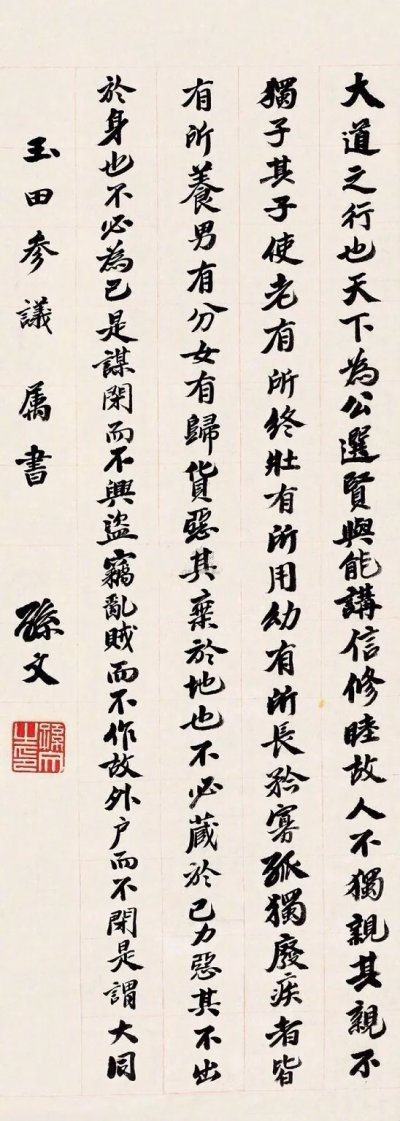 大道之行也天下為公選賢與能講信修睦故人不獨親其親不
獨子其子使老有所終壯有所用幼有所長矜寡孤獨廢疾者皆
有所養男有分女有歸貨惡其棄於地也不必藏於己力惡其不出
於身也不必為己是謀閉而不興盜竊亂賊而不作故外戶而不閉是謂大同
玉田參議属書 孫文
孫文之印